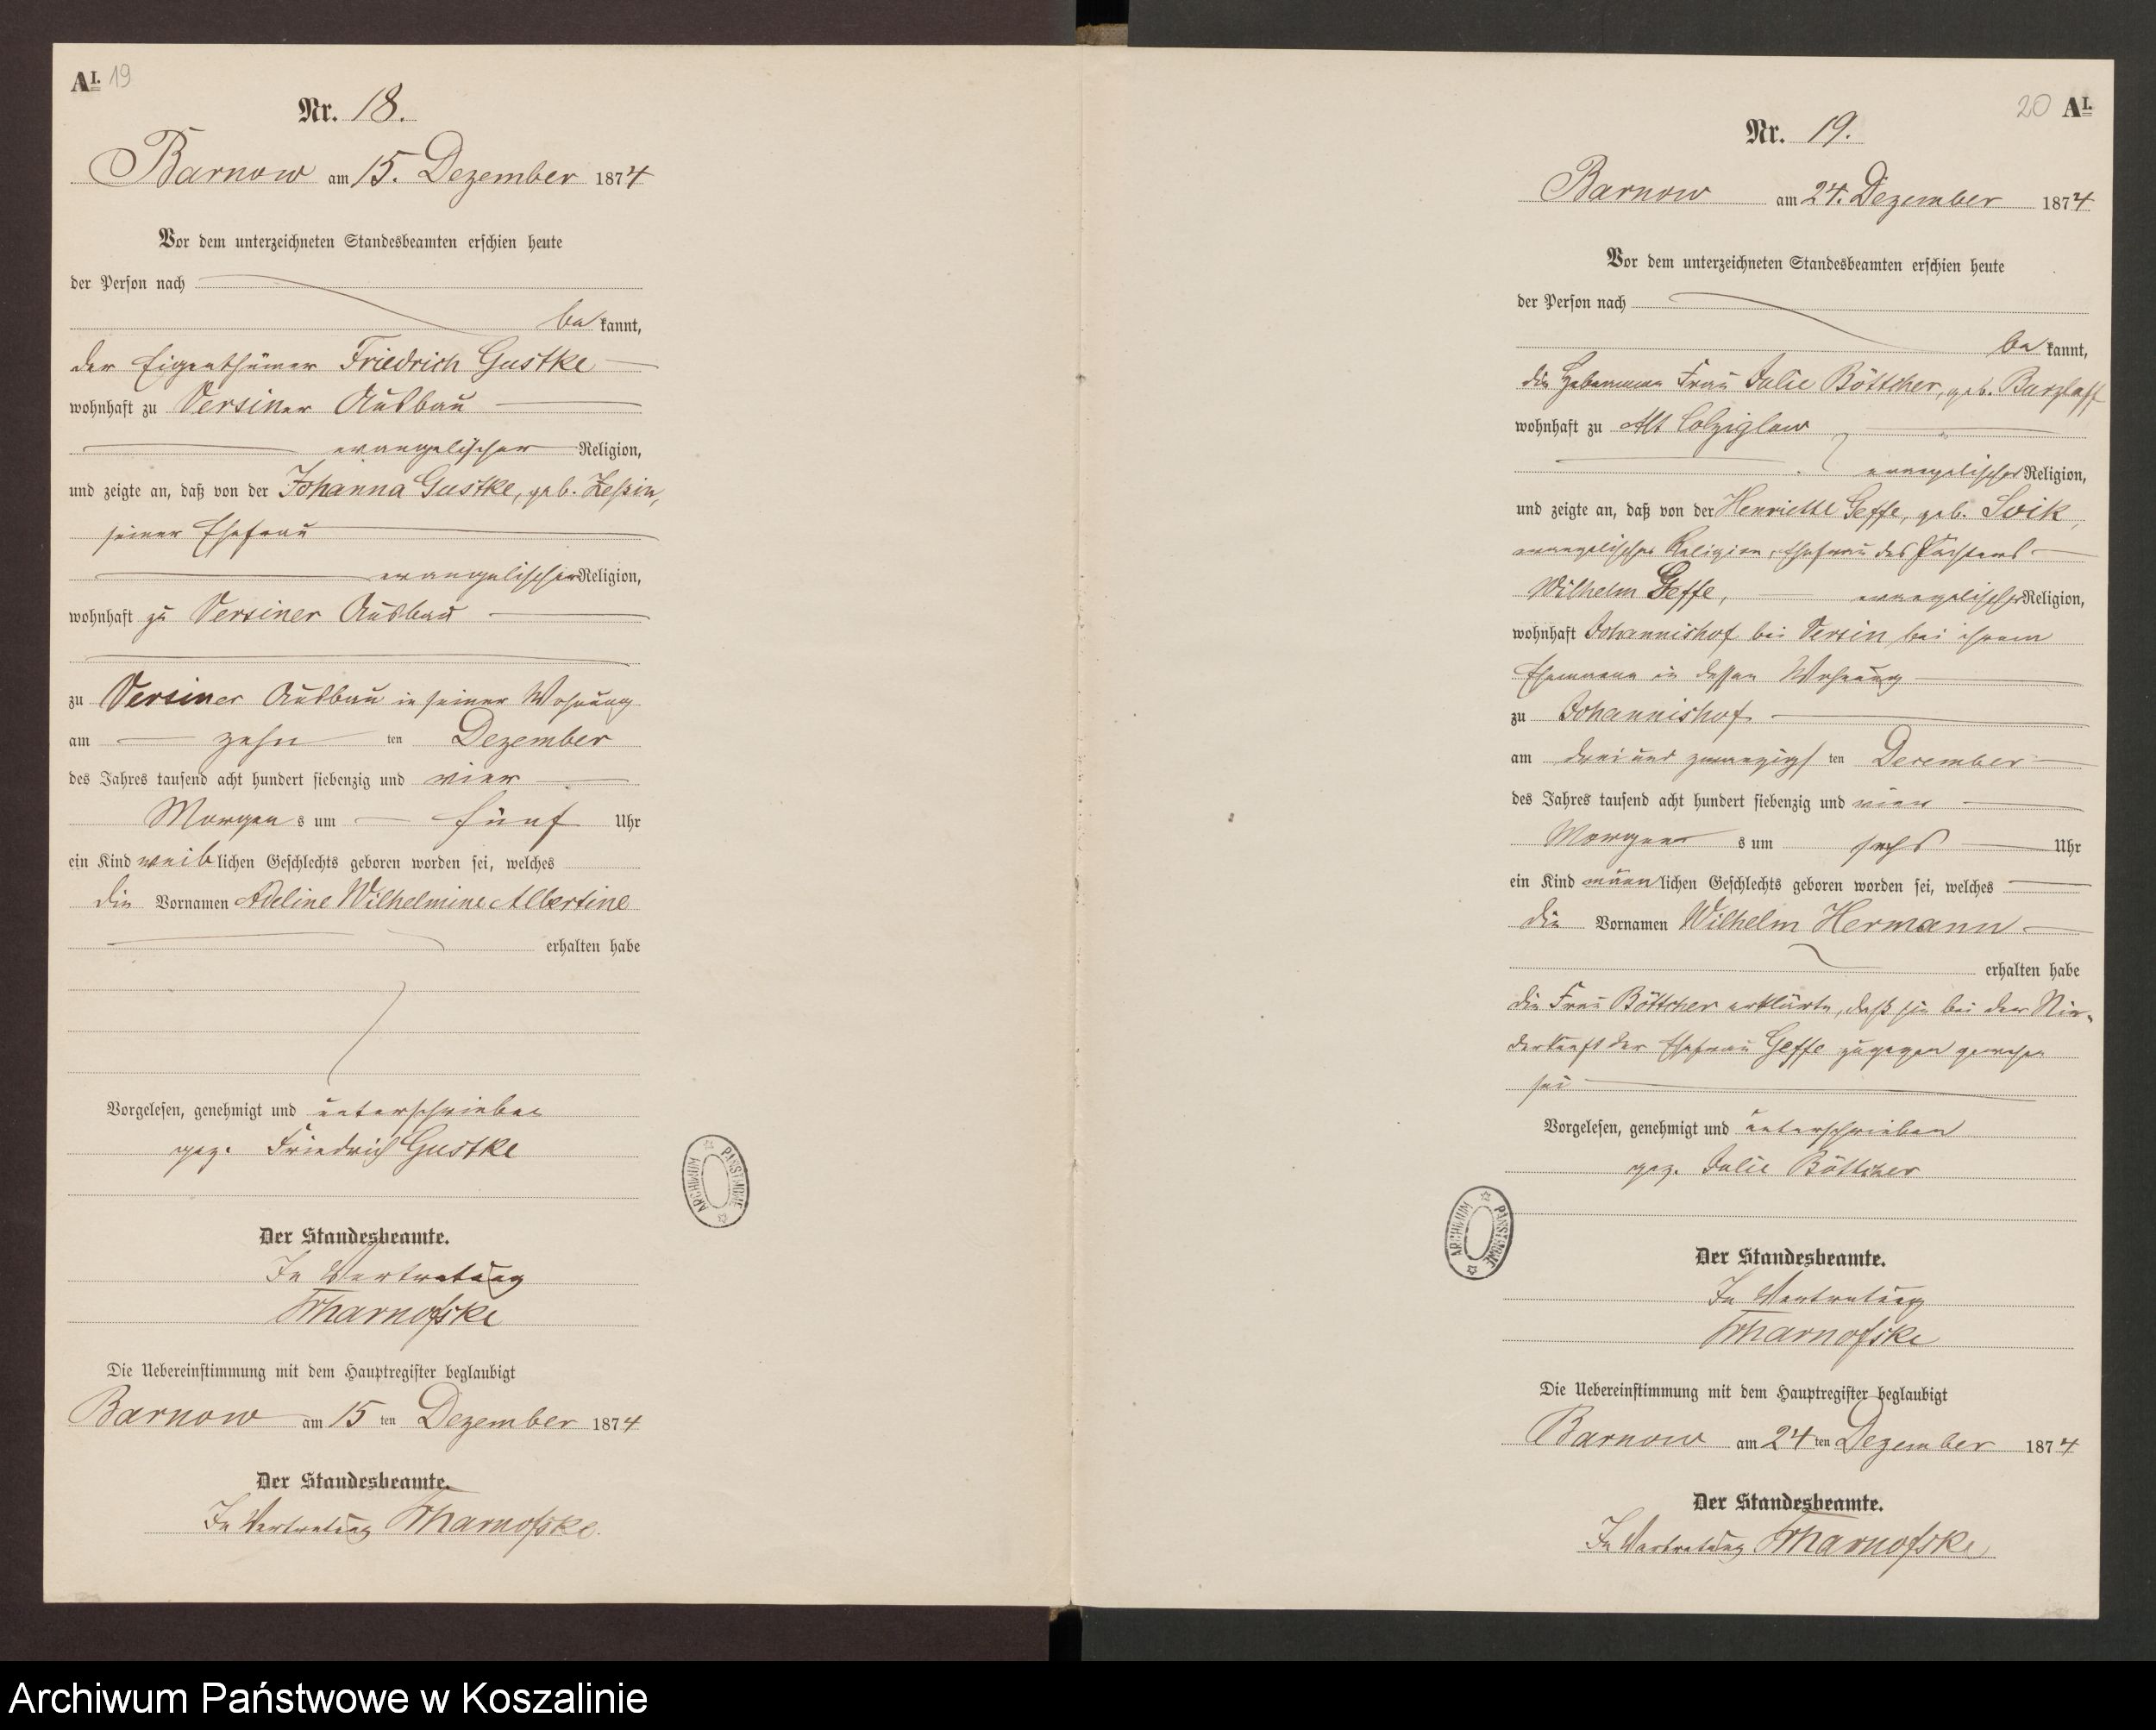 AI. 19
Nr. 18.
Barnow am 15. Dezember 1874
Vor dem unterzeichneten Standesbeamten erschien heute
der Person nach
be kannt,
der Eigenthümer Friedrich Gustke
wohnhaft zu Versiner Ausbau
evangelischer Religion,
und zeigte an, daß von der Johanna Gustke, geb. Zessin,
seiner Ehefrau
evangelischer Religion,
wohnhaft zu Versiner Ausbau
zu Versiner Ausbau in seiner Wohnung
am zehn ten Dezember
des Jahres tausend acht hundert siebenzig und vier
Morgen s um fünf Uhr
ein Kind weib lichen Geschlechts geboren worden sei, welches
die Vornamen Adeline Wilhelmine Albertine
erhalten habe
Vorgelesen, genehmigt und unterschrieben
gez. Friedrich Gustke
Der Standesbeamte.
In Vertretung
Die Uebereinstimmung mit dem Hauptregister beglaubigt
Barnow am 15 ten Dezember 1874
Der Standesbeamte.
In Vertretung
ARCHIWUM PAŃSTWOWE
20 AI.
Nr. 19.
Barnow am 24. Dezember 1874
Vor dem unterzeichneten Standesbeamten erschien heute
der Person nach
be kannt,
die Hebamme Frau Julie Böttcher, geb. Barzlaff
wohnhaft zu Alt Colziglow
evangelischer Religion,
und zeigte an, daß von der Henriette Geffe, geb. Voik,
evangelischer Religion, Ehefrau des Pächters
Wilhelm Geffe, evangelischer Religion,
wohnhaft Johannishof bei Versin bei ihrem
Ehemann in dessen Wohnung
zu Johannishof
am drei und zwanzigs ten December
des Jahres tausend acht hundert siebenzig und vier
Morgen s um sechs Uhr
ein Kind männ lichen Geschlechts geboren worden sei, welches
die Vornamen Wilhelm Hermann
erhalten habe
die Frau Böttcher erklärte, daß sie bei der Nie-
derkunft der Ehefrau Geffe zugegen gewesen
sei
Vorgelesen, genehmigt und unterschrieben
gez. Julie Böttcher
Der Standesbeamte.
In Vertretung
Die Uebereinstimmung mit dem Hauptregister beglaubigt
Barnow am 24 ten Dezember 1874
Der Standesbeamte.
In Vertretung
ARCHIWUM PAŃSTWOWE
Archiwum Państwowe w Koszalinie